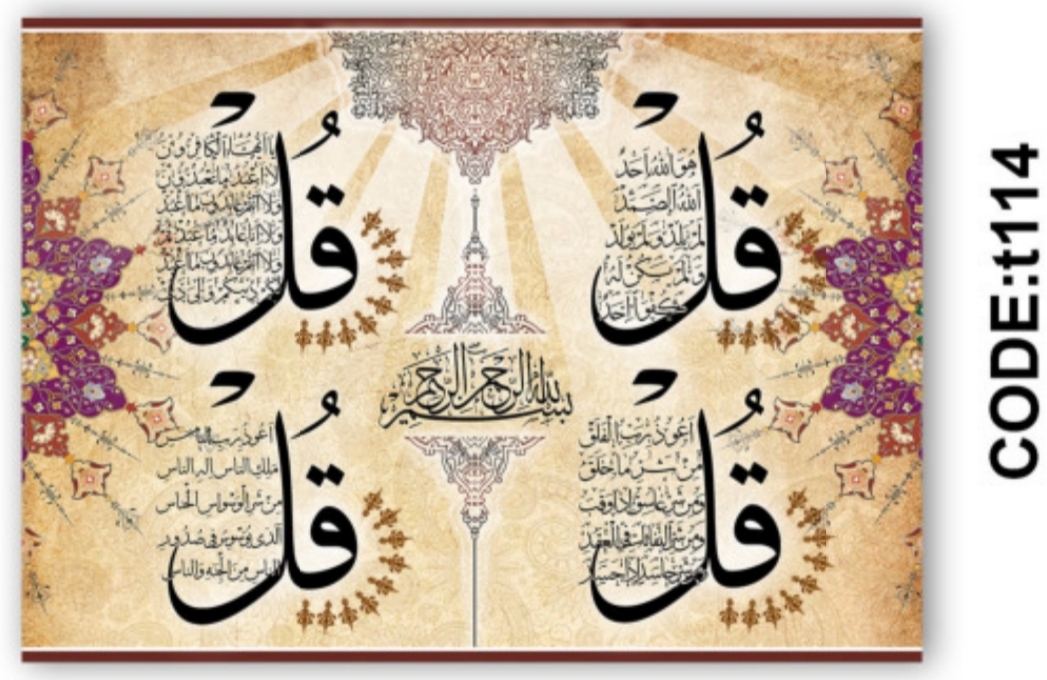 قُل
هُوَ اللهُ اَحَدٌ
اَللهُ الصَّمَدُ
لَمْ يَلِدْ وَلَمْ يُولَدْ
وَلَمْ يَكُنْ لَهُ
كُفُوًا اَحَدٌ
قُل
يَا اَيُّهَا الْكَافِرُونَ
لَا اَعْبُدُ مَا تَعْبُدُونَ
وَلَا اَنْتُمْ عَابِدُونَ مَا اَعْبُدُ
وَلَا اَنَا عَابِدٌ مَا عَبَدْتُمْ
وَلَا اَنْتُمْ عَابِدُونَ مَا اَعْبُدُ
لَكُمْ دِينُكُمْ وَلِيَ دِينِ
بسم الله الرحمن الرحيم
قُل
اَعُوذُ بِرَبِّ الْفَلَقِ
مِنْ شَرِّ مَا خَلَقَ
وَمِنْ شَرِّ غَاسِقٍ اِذَا وَقَبَ
وَمِنْ شَرِّ النَّفَّاثَاتِ فِي الْعُقَدِ
وَمِنْ شَرِّ حَاسِدٍ اِذَا حَسَدَ
قُل
اَعُوذُ بِرَبِّ النَّاسِ
مَلِكِ النَّاسِ اِلٰهِ النَّاسِ
مِنْ شَرِّ الْوَسْوَاسِ الْخَنَّاسِ
اَلَّذِي يُوَسْوِسُ فِي صُدُورِ
النَّاسِ مِنَ الْجِنَّةِ وَالنَّاسِ
CODE:t114